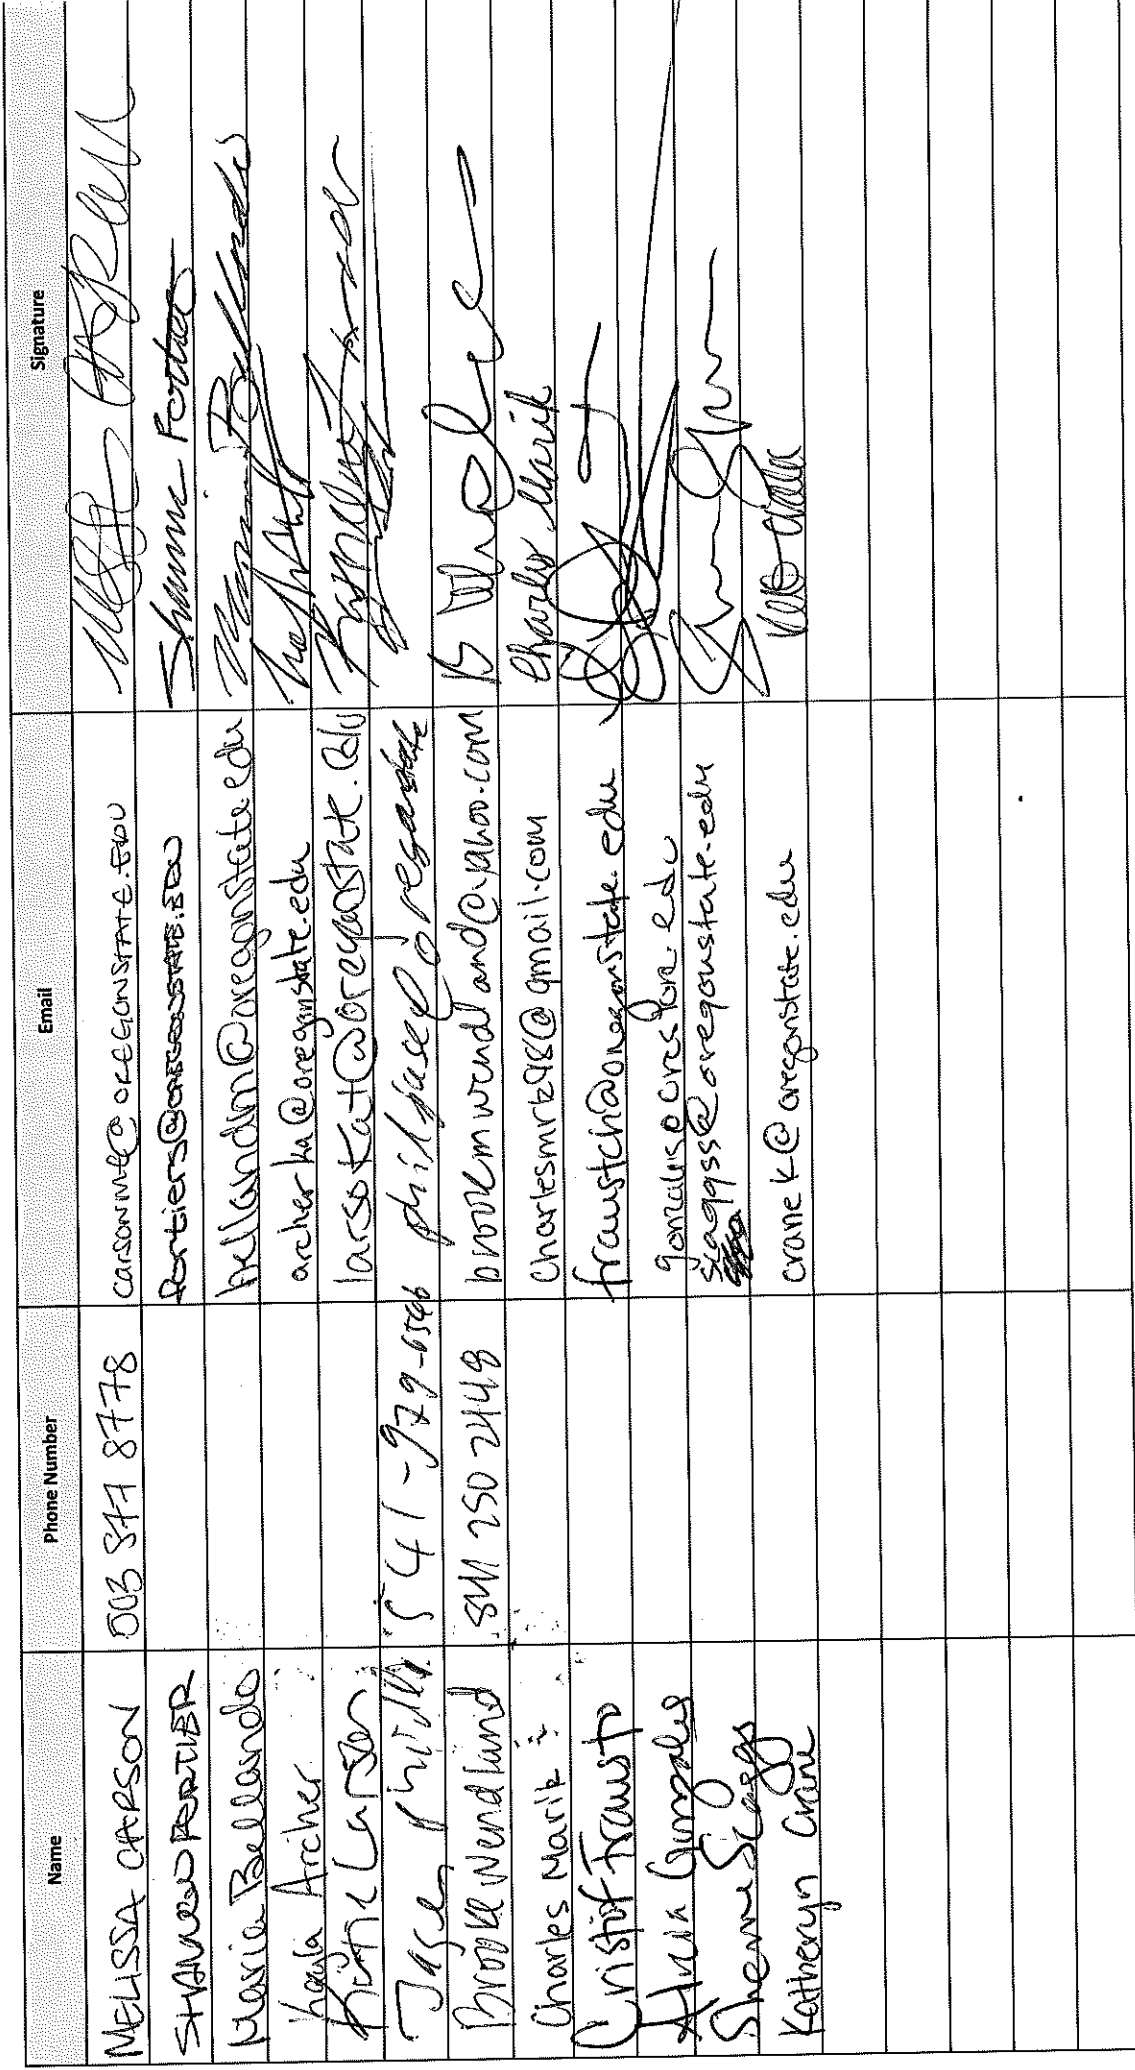 Name Phone Number Email Signature
MELISSA CARSON 503 577 8778 carsonme@OREGONSTATE.EDU
SHANNON FORTIER fortiers@OREGONSTATE.EDU
Maria Bellando bellandm@oregonstate.edu
Kayla Archer archerka@oregonstate.edu
Katie Larson larsokat@oregonstate.edu
Jasen phillips 541-979-6546 philljase@oregonstate
Brooke Wendland 541 250 2448 brookemwendland@yahoo.com
Charles Marik Charlesmrk98@gmail.com Charles Marik
Cristof Frausto fraustch@oregonstate.edu
Alicia Gonzales
Sherree Scaggs scaggss@oregonstate.edu
Katheryn Crane craneK@oregonstate.edu